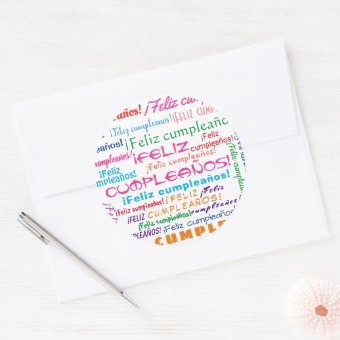 ños! ¡Feliz cum
¡Feliz cumpleaños! ¡FELIZ CUM
años! ¡Feliz cumpleaño
cumpleaños! ¡FELIZ ¡Feliz cumpleaños!
¡FELIZ CUMPLEAÑOS!
mpleaños! ¡Feliz cumpleaños!
¡Feliz cumpleaños! ¡FELIZ cumpleaños!
CUMPLEAÑOS!
¡Feliz cumpleaños!
¡Feliz cumpleaños!
CUMPLE